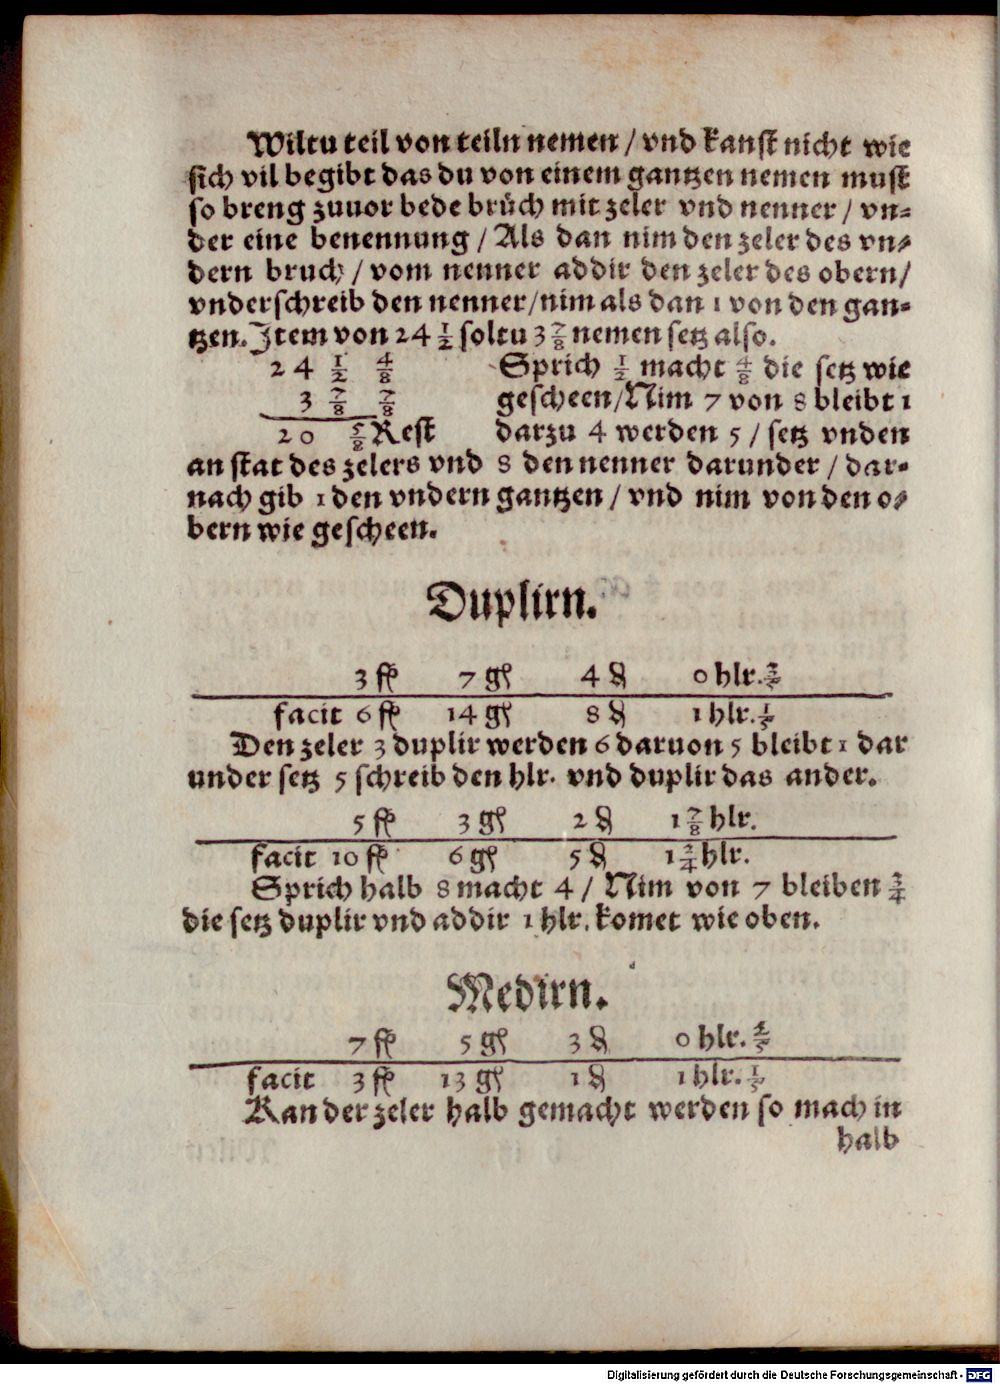 Wiltu teil von teiln nemen / vnd kanst nicht wie
sich vil begibt das du von einem gantzen nemen must
so breng zuuor bede brüch mit zeler vnd nenner / vn-
der eine benennung / Als dan nim den zeler des vn-
dern bruch / vom nenner addir den zeler des obern /
vnderschreib den nenner / nim als dan 1 von den gan-
tzen. Item von 24 1/2 soltu 3 7/8 nemen setz also.
24 1/2 4/8 Sprich 1/2 macht 4/8 die setz wie
3 7/8 7/8 gescheen / Nim 7 von 8 bleibt 1
20 5/8 Rest darzu 4 werden 5 / setz vnden
an stat des zelers vnd 8 den nenner darunder / dar-
nach gib 1 den vndern gantzen / vnd nim von den o-
bern wie gescheen.
Duplirn.
3 fl 7 gl 4 ₰ 0 hlr. 3/5
facit 6 fl 14 gl 8 ₰ 1 hlr. 1/5
Den zeler 3 duplir werden 6 daruon 5 bleibt 1 dar
under setz 5 schreib den hlr. vnd duplir das ander.
5 fl 3 gl 2 ₰ 1 7/8 hlr.
facit 10 fl 6 gl 5 ₰ 1 3/4 hlr.
Sprich halb 8 macht 4 / Nim von 7 bleiben 3/4
die setz duplir vnd addir 1 hlr. komet wie oben.
Medirn.
7 fl 5 gl 3 ₰ 0 hlr. 2/5
facit 3 fl 13 gl 1 ₰ 1 hlr. 1/5
Kan der zeler halb gemacht werden so mach in
halb
Digitalisierung gefördert durch die Deutsche Forschungsgemeinschaft - DFG